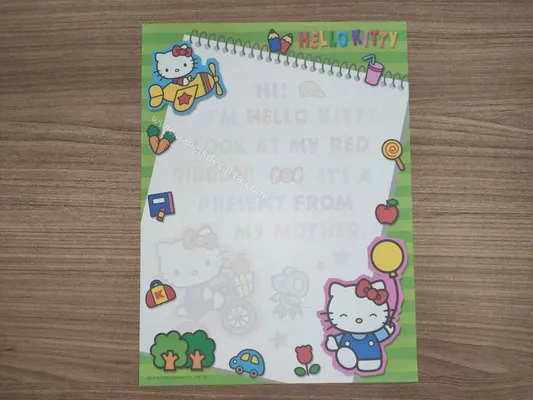 HELLO KITTY
HI!
I'M HELLO KITTY.
LOOK AT MY RED
RIBBON! IT'S A
PRESENT FROM
MY MOTHER.
K